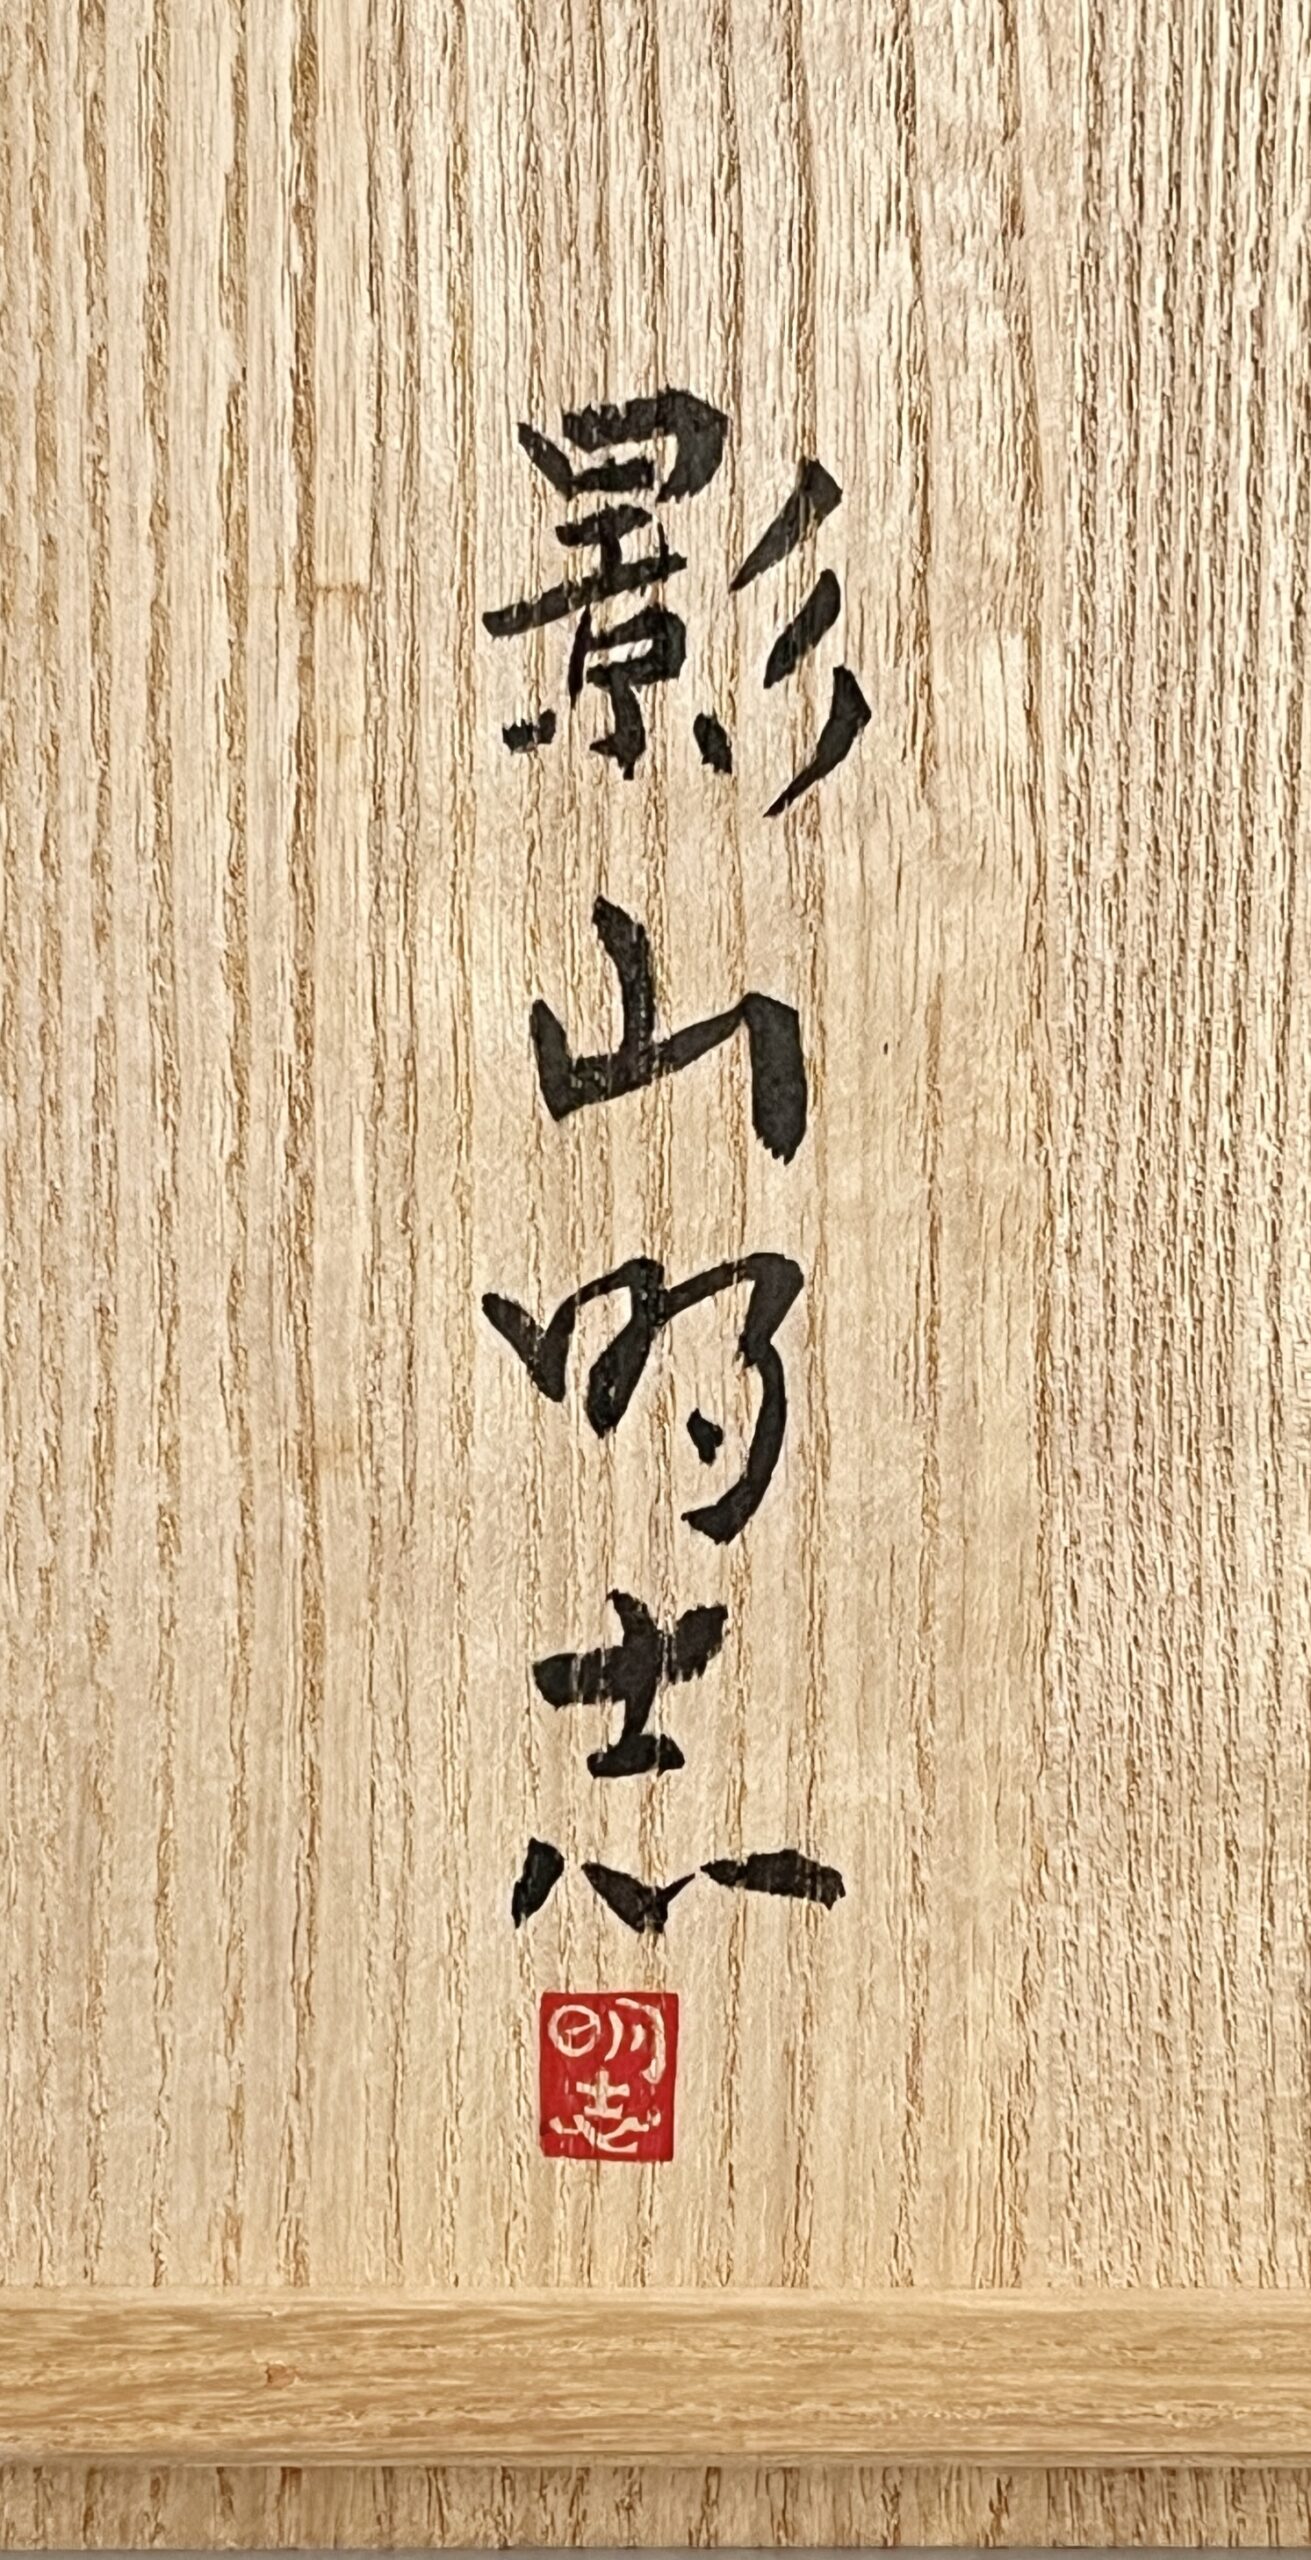 影山明志
明志